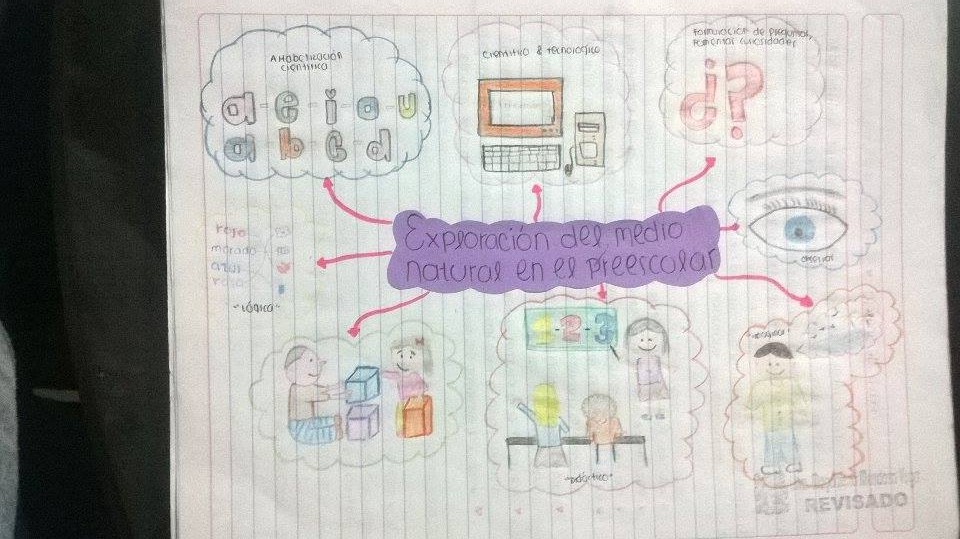 Alfabetización
científica
a-e-i-o-u
a b c d
científico & tecnológico
Formulación de preguntas,
fomentar curiosidades
¿?
Exploración del medio
natural en el preescolar
observar
rojo
morado
azul
rosa
-lógico-
1-2-3
-didáctico-
REVISADO